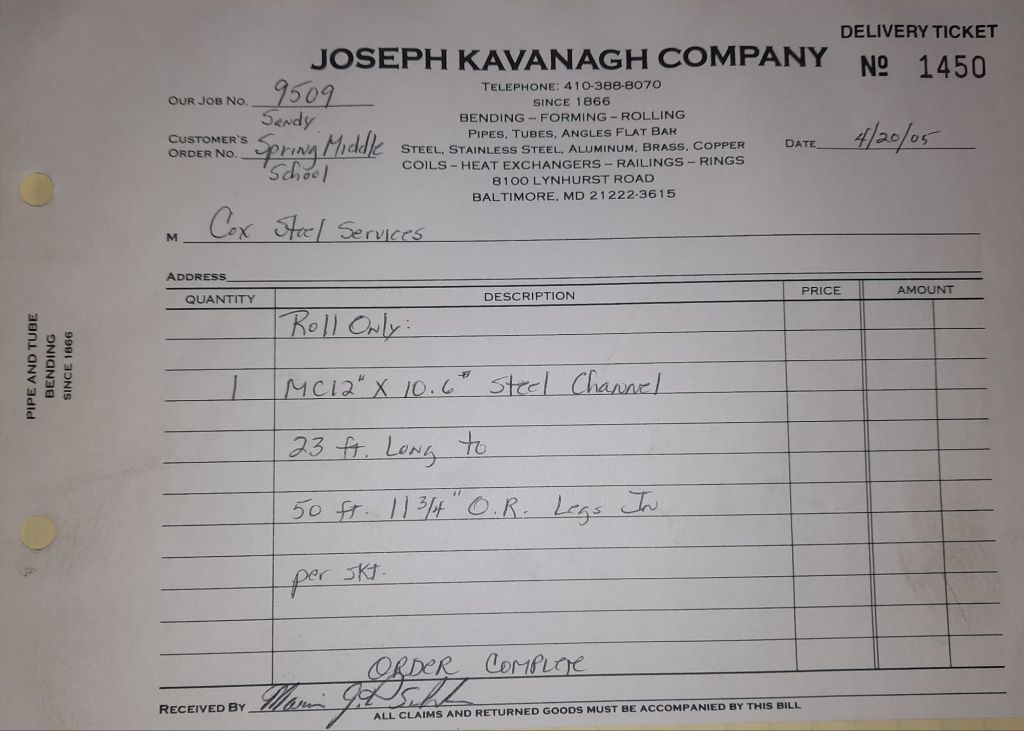 DELIVERY TICKET
JOSEPH KAVANAGH COMPANY
Nº 1450
TELEPHONE: 410-388-8070
SINCE 1866
BENDING – FORMING – ROLLING
PIPES, TUBES, ANGLES FLAT BAR
STEEL, STAINLESS STEEL, ALUMINUM, BRASS, COPPER
COILS – HEAT EXCHANGERS – RAILINGS – RINGS
8100 LYNHURST ROAD
BALTIMORE, MD 21222-3615
OUR JOB NO. 9509
CUSTOMER'S ORDER NO. Sandy
Spring Middle
School
DATE 4/20/05
M Cox Steel Services
ADDRESS
QUANTITY DESCRIPTION PRICE AMOUNT
Roll Only:
1 MC12" X 10.6# Steel Channel
23 ft. Long to
50 ft. 11 3/4" O.R. Legs In
per skt.
ORDER COMPLETE
RECEIVED BY
ALL CLAIMS AND RETURNED GOODS MUST BE ACCOMPANIED BY THIS BILL
PIPE AND TUBE
BENDING
SINCE 1866